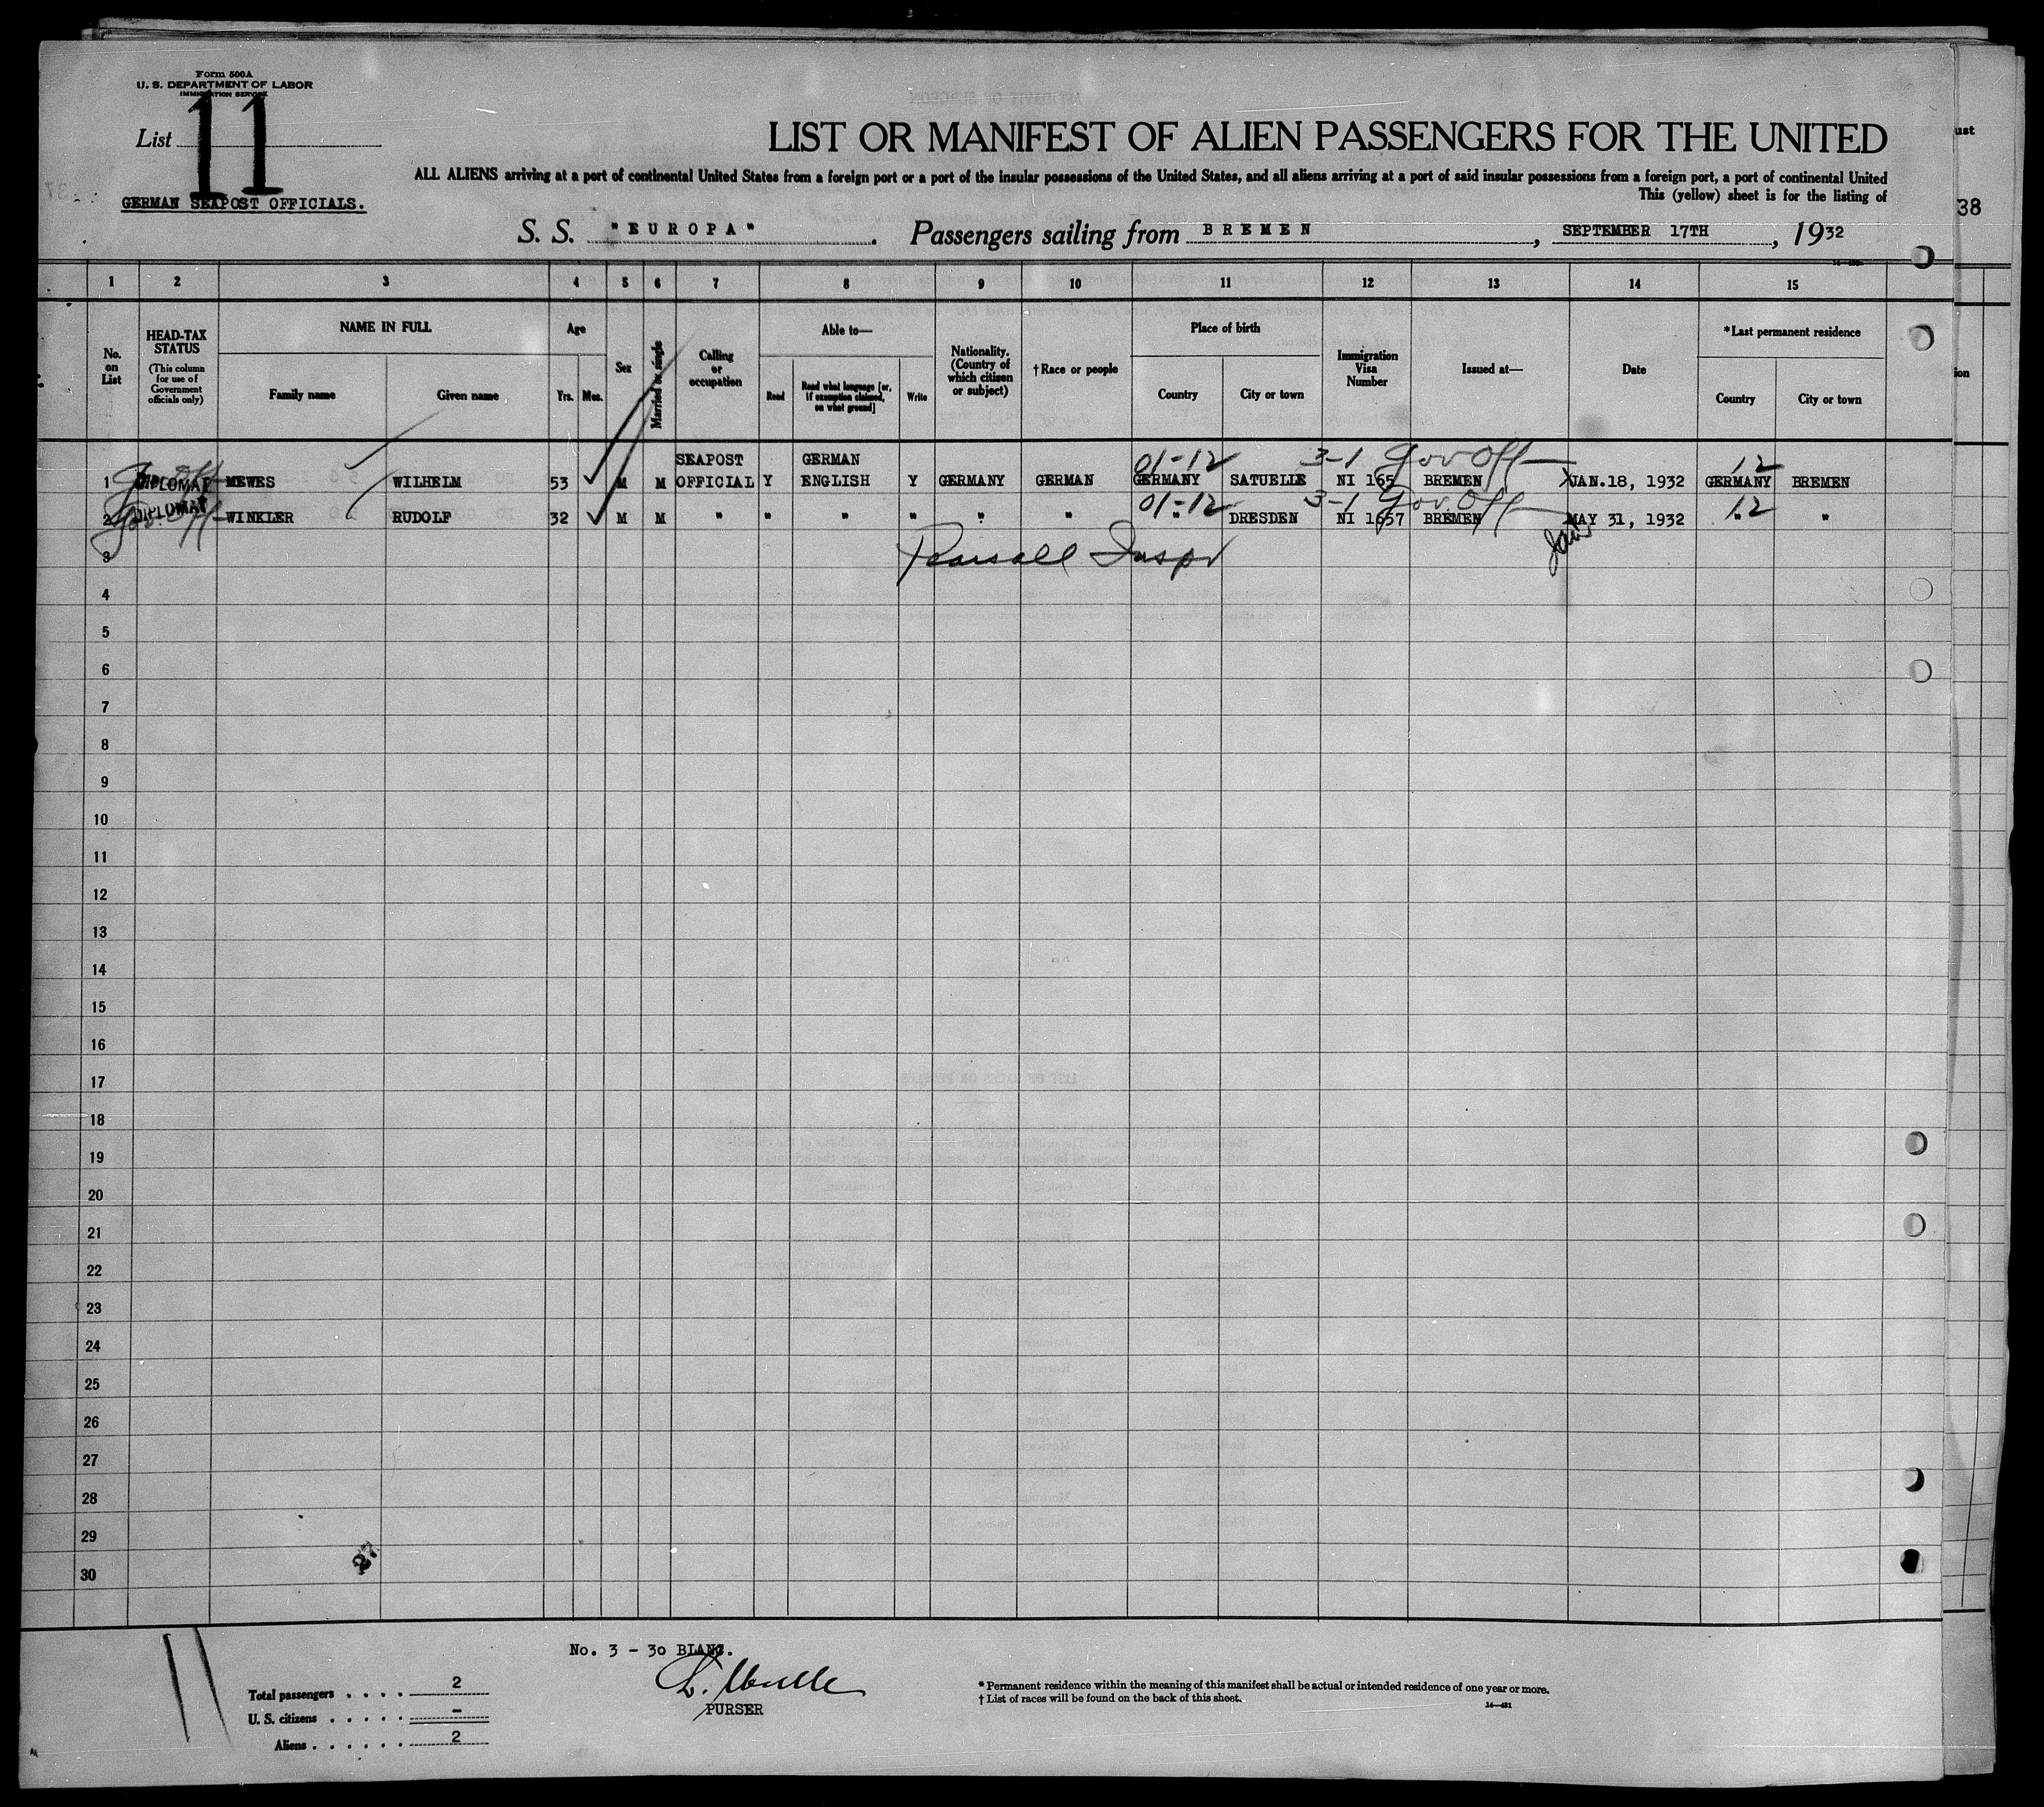 Form 500A
U. S. DEPARTMENT OF LABOR
IMMIGRATION SERVICE
List 11
GERMAN SEAPOST OFFICIALS.
LIST OR MANIFEST OF ALIEN PASSENGERS FOR THE UNITED
ALL ALIENS arriving at a port of continental United States from a foreign port or a port of the insular possessions of the United States, and all aliens arriving at a port of said insular possessions from a foreign port, a port of continental United
This (yellow) sheet is for the listing of
S. S. "EUROPA". Passengers sailing from BREMEN, SEPTEMBER 17TH, 1932
ust
38
ion
1 2 3 4 5 6 7 8 9 10 11 12 13 14 15
No. on List
HEAD-TAX STATUS (This column for use of Government officials only)
NAME IN FULL
Family name Given name
Age
Yrs. Mos.
Sex
Married or single
Calling or occupation
Able to—
Read
Read what language [or, if exemption claimed, on what ground]
Write
Nationality. (Country of which citizen or subject)
†Race or people
Place of birth
Country City or town
Immigration Visa Number
Issued at—
Date
*Last permanent residence
Country City or town
01-12 3-1 Gov Off 12
1 DIPLOMAT MEWES WILHELM 53 M M SEAPOST OFFICIAL Y GERMAN ENGLISH Y GERMANY GERMAN GERMANY SATUELLE NI 165 BREMEN JAN.18, 1932 GERMANY BREMEN
Gov. Off 01-12 3-1 Gov. Off 12
2 DIPLOMAT WINKLER RUDOLF 32 M M " " " " " " " DRESDEN NI 1657 BREMEN MAY 31, 1932 " "
3
Pearsall Inspr
4
5
6
7
8
9
10
11
12
13
14
15
16
17
18
19
20
21
22
23
24
25
26
27
28
29
30
No. 3 - 30 BLANK.
PURSER
Total passengers . . . . 2
U. S. citizens . . . . . -
Aliens . . . . . . 2
* Permanent residence within the meaning of this manifest shall be actual or intended residence of one year or more.
† List of races will be found on the back of this sheet.
14—481